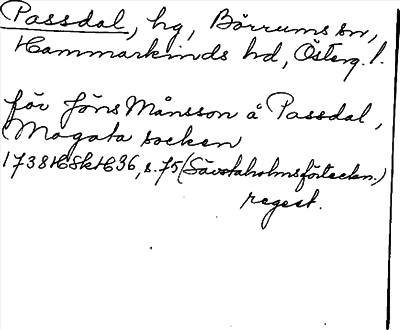 Passdal, hg, Börrums sn,
Hammarkinds hd, Österg. l.
för Jöns Månsson å Passdal,
Mogata socken
1738 HSkH 36, s. 75 (Sävstaholmsförteckn.)
regest.